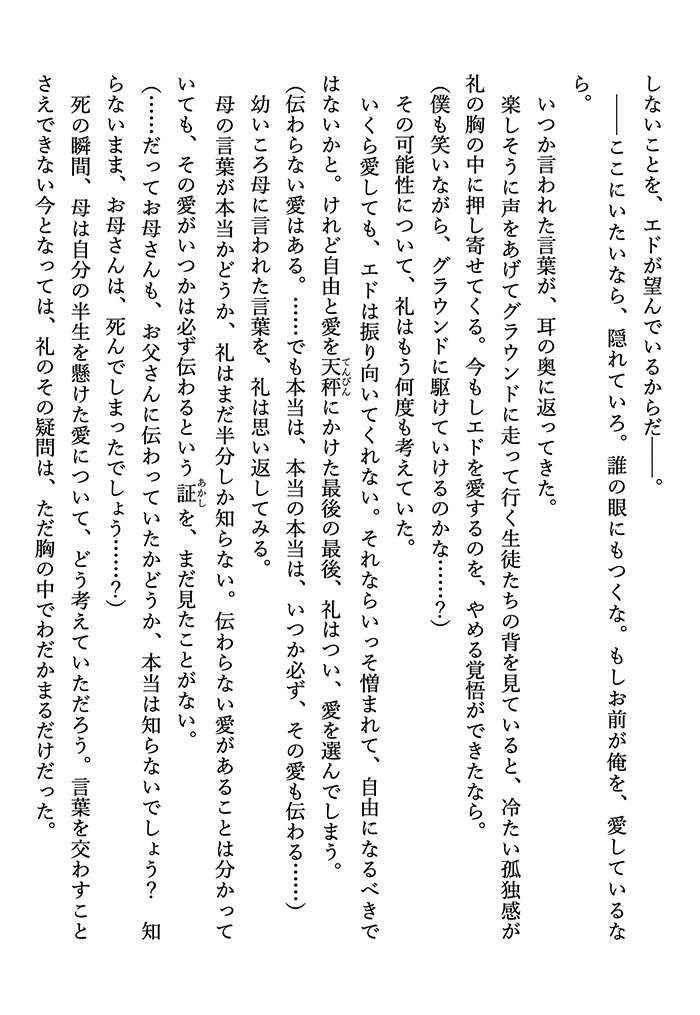 しないことを、エドが望んでいるからだ――。
――ここにいたいなら、隠れていろ。誰の眼にもつくな。もしお前が俺を、愛しているな
ら。
いつか言われた言葉が、耳の奥に返ってきた。
楽しそうに声をあげてグラウンドに走って行く生徒たちの背を見ていると、冷たい孤独感が
礼の胸の中に押し寄せてくる。今もしエドを愛するのを、やめる覚悟ができたなら。
(僕も笑いながら、グラウンドに駆けていけるのかな……?)
その可能性について、礼はもう何度も考えていた。
いくら愛しても、エドは振り向いてくれない。それならいっそ憎まれて、自由になるべきで
はないかと。けれど自由と愛を天秤てんびんにかけた最後の最後、礼はつい、愛を選んでしまう。
(伝わらない愛はある。……でも本当は、本当の本当は、いつか必ず、その愛も伝わる……)
幼いころ母に言われた言葉を、礼は思い返してみる。
母の言葉が本当かどうか、礼はまだ半分しか知らない。伝わらない愛があることは分かって
いても、その愛がいつかは必ず伝わるという証あかしを、まだ見たことがない。
(……だってお母さんも、お父さんに伝わっていたかどうか、本当は知らないでしょう? 知
らないまま、お母さんは、死んでしまったでしょう……?)
死の瞬間、母は自分の半生を懸けた愛について、どう考えていただろう。言葉を交わすこと
さえできない今となっては、礼のその疑問は、ただ胸の中でわだかまるだけだった。